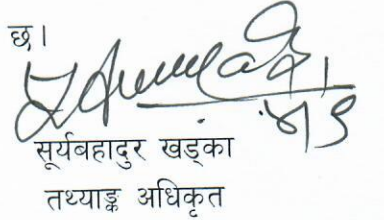 छ।
सूर्यबहादुर खड्का
तथ्याङ्क अधिकृत